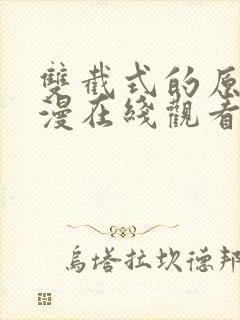 雙截式的原
漫在綫觀看
烏塔拉坎德邦